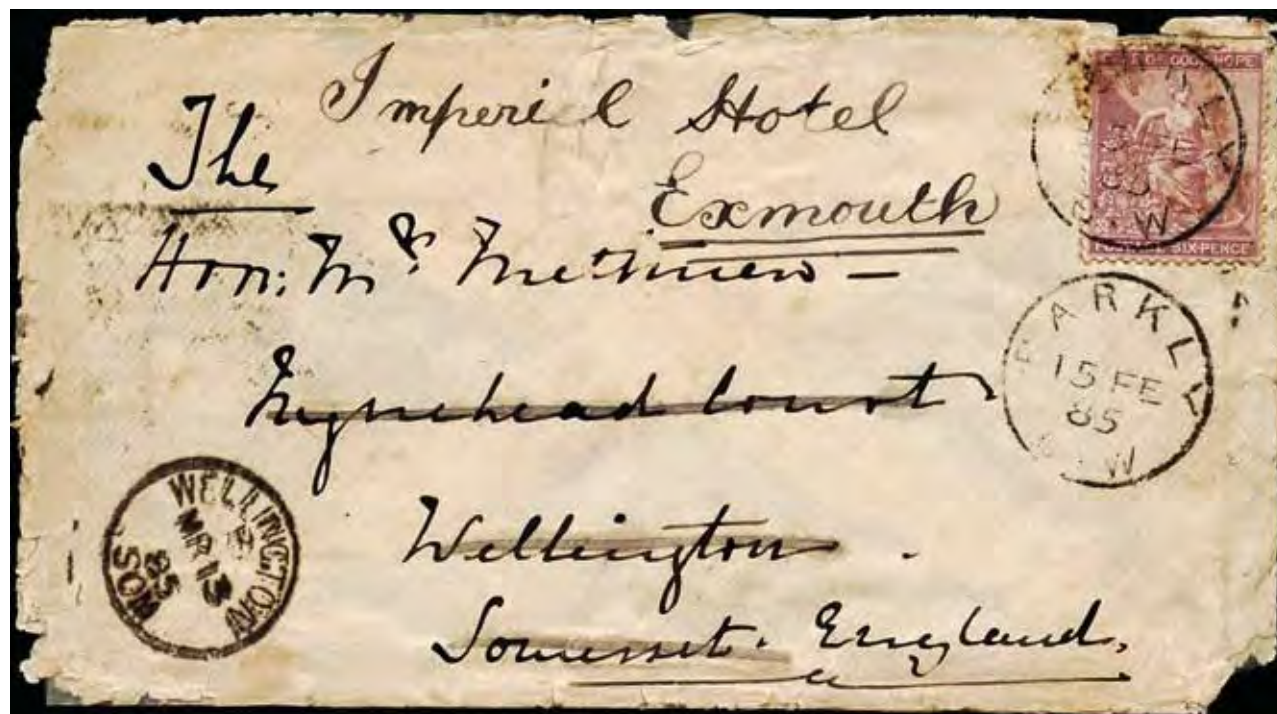 Imperial Hotel
Exmouth
The
Hon: Mrs Methuen —
Nynehead Court
Wellington.
Somerset. England.
OF GOOD HOPE
POSTAGE SIX-PENCE
BARKLY
15 FE
85
W
WELLINGTON
MR 13
85
SOM